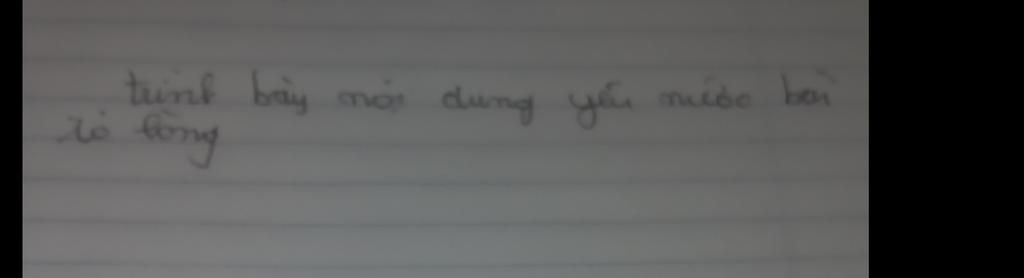 trình bày nội dung yếu nước bài
tỏ lòng